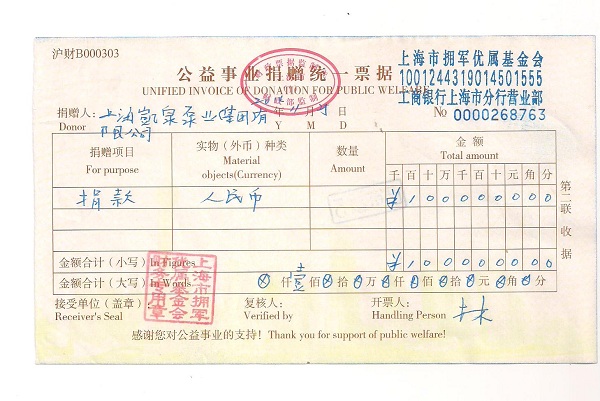 沪财B000303
公益事业捐赠统一票据
UNIFIED INVOICE OF DONATION FOR PUBLIC WELFARE
上海市拥军优属基金会
1001244319014501555
工商银行上海市分行营业部
No 0000268763
捐赠人: 上海凯泉泵业集团有限公司 年 月 日
Donor Y M D
捐赠项目 实物(外币)种类 数量 金额
For purpose Material objects(Currency) Amount Total amount
千 百 十 万 千 百 十 元 角 分
捐款 人民币 ¥ 1 0 0 0 0 0 0 0 0
金额合计(小写) In Figures ¥ 1 0 0 0 0 0 0 0 0
金额合计(大写) In Words ⊗ 仟 壹 佰 拾 万 仟 佰 拾 元 角 分
接受单位(盖章): 复核人: 开票人:
Receiver's Seal Verified by Handling Person
感谢您对公益事业的支持! Thank you for support of public welfare!
第二联 收据
上海市拥军优属基金会财务专用章